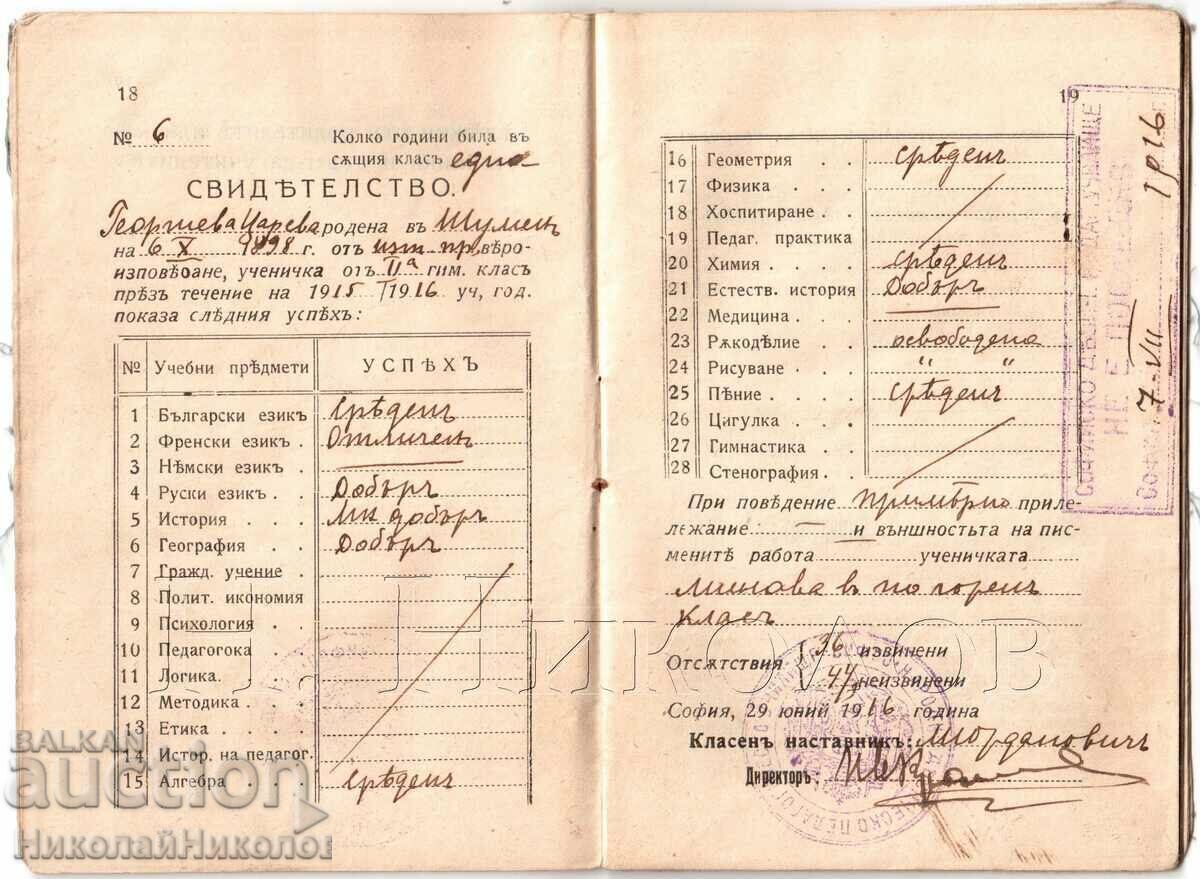 18
№ 6 Колко години била въ
сѫщия класъ една
СВИДѢТЕЛСТВО.
Георгиева Царева родена въ Шуменъ
на 6 X 1898 г. отъ изт. пр. вѣро-
изповѣдане, ученичка отъ IIа гим. класъ
прѣзъ течение на 1915/1916 уч. год.
показа слѣдния успѣхъ:
№ Учебни прѣдмети УСПѢХЪ
1 Български езикъ Срѣденъ
2 Френски езикъ . Отличенъ
3 Нѣмски езикъ . .
4 Руски езикъ . . Добъръ
5 История . . . Мн. добъръ
6 География . . . Добъръ
7 Гражд. учение .
8 Полит. икономия
9 Психология . .
10 Педагогока . .
11 Логика. . . .
12 Методика . . .
13 Етика . . . .
14 Истор. на педагог.
15 Алгебра . . . Срѣденъ
19
16 Геометрия . . Срѣденъ
17 Физика . . . .
18 Хоспитиране . .
19 Педаг. практика
20 Химия . . . . срѣденъ
21 Естеств. история Добъръ
22 Медицина . . .
23 Рѫкодѣлие . . освободена
24 Рисуване . . . " "
25 Пѣние . . . . Срѣденъ
26 Цигулка . . .
27 Гимнастика . .
28 Стенография. .
При поведение примѣрно приле-
лежание — и външностьта на пис-
менитѣ работа ученичката
минава въ по горенъ
класъ
Отсѫтствия 36 извинени
44 неизвинени
София, 29 юний 1916 година
Класенъ наставникъ: Мюрдановичъ
Директоръ:
НЕ Е ПОС
7-VII 1916
П. НИКОЛОВ
BALKAN
auction
НиколайНиколов